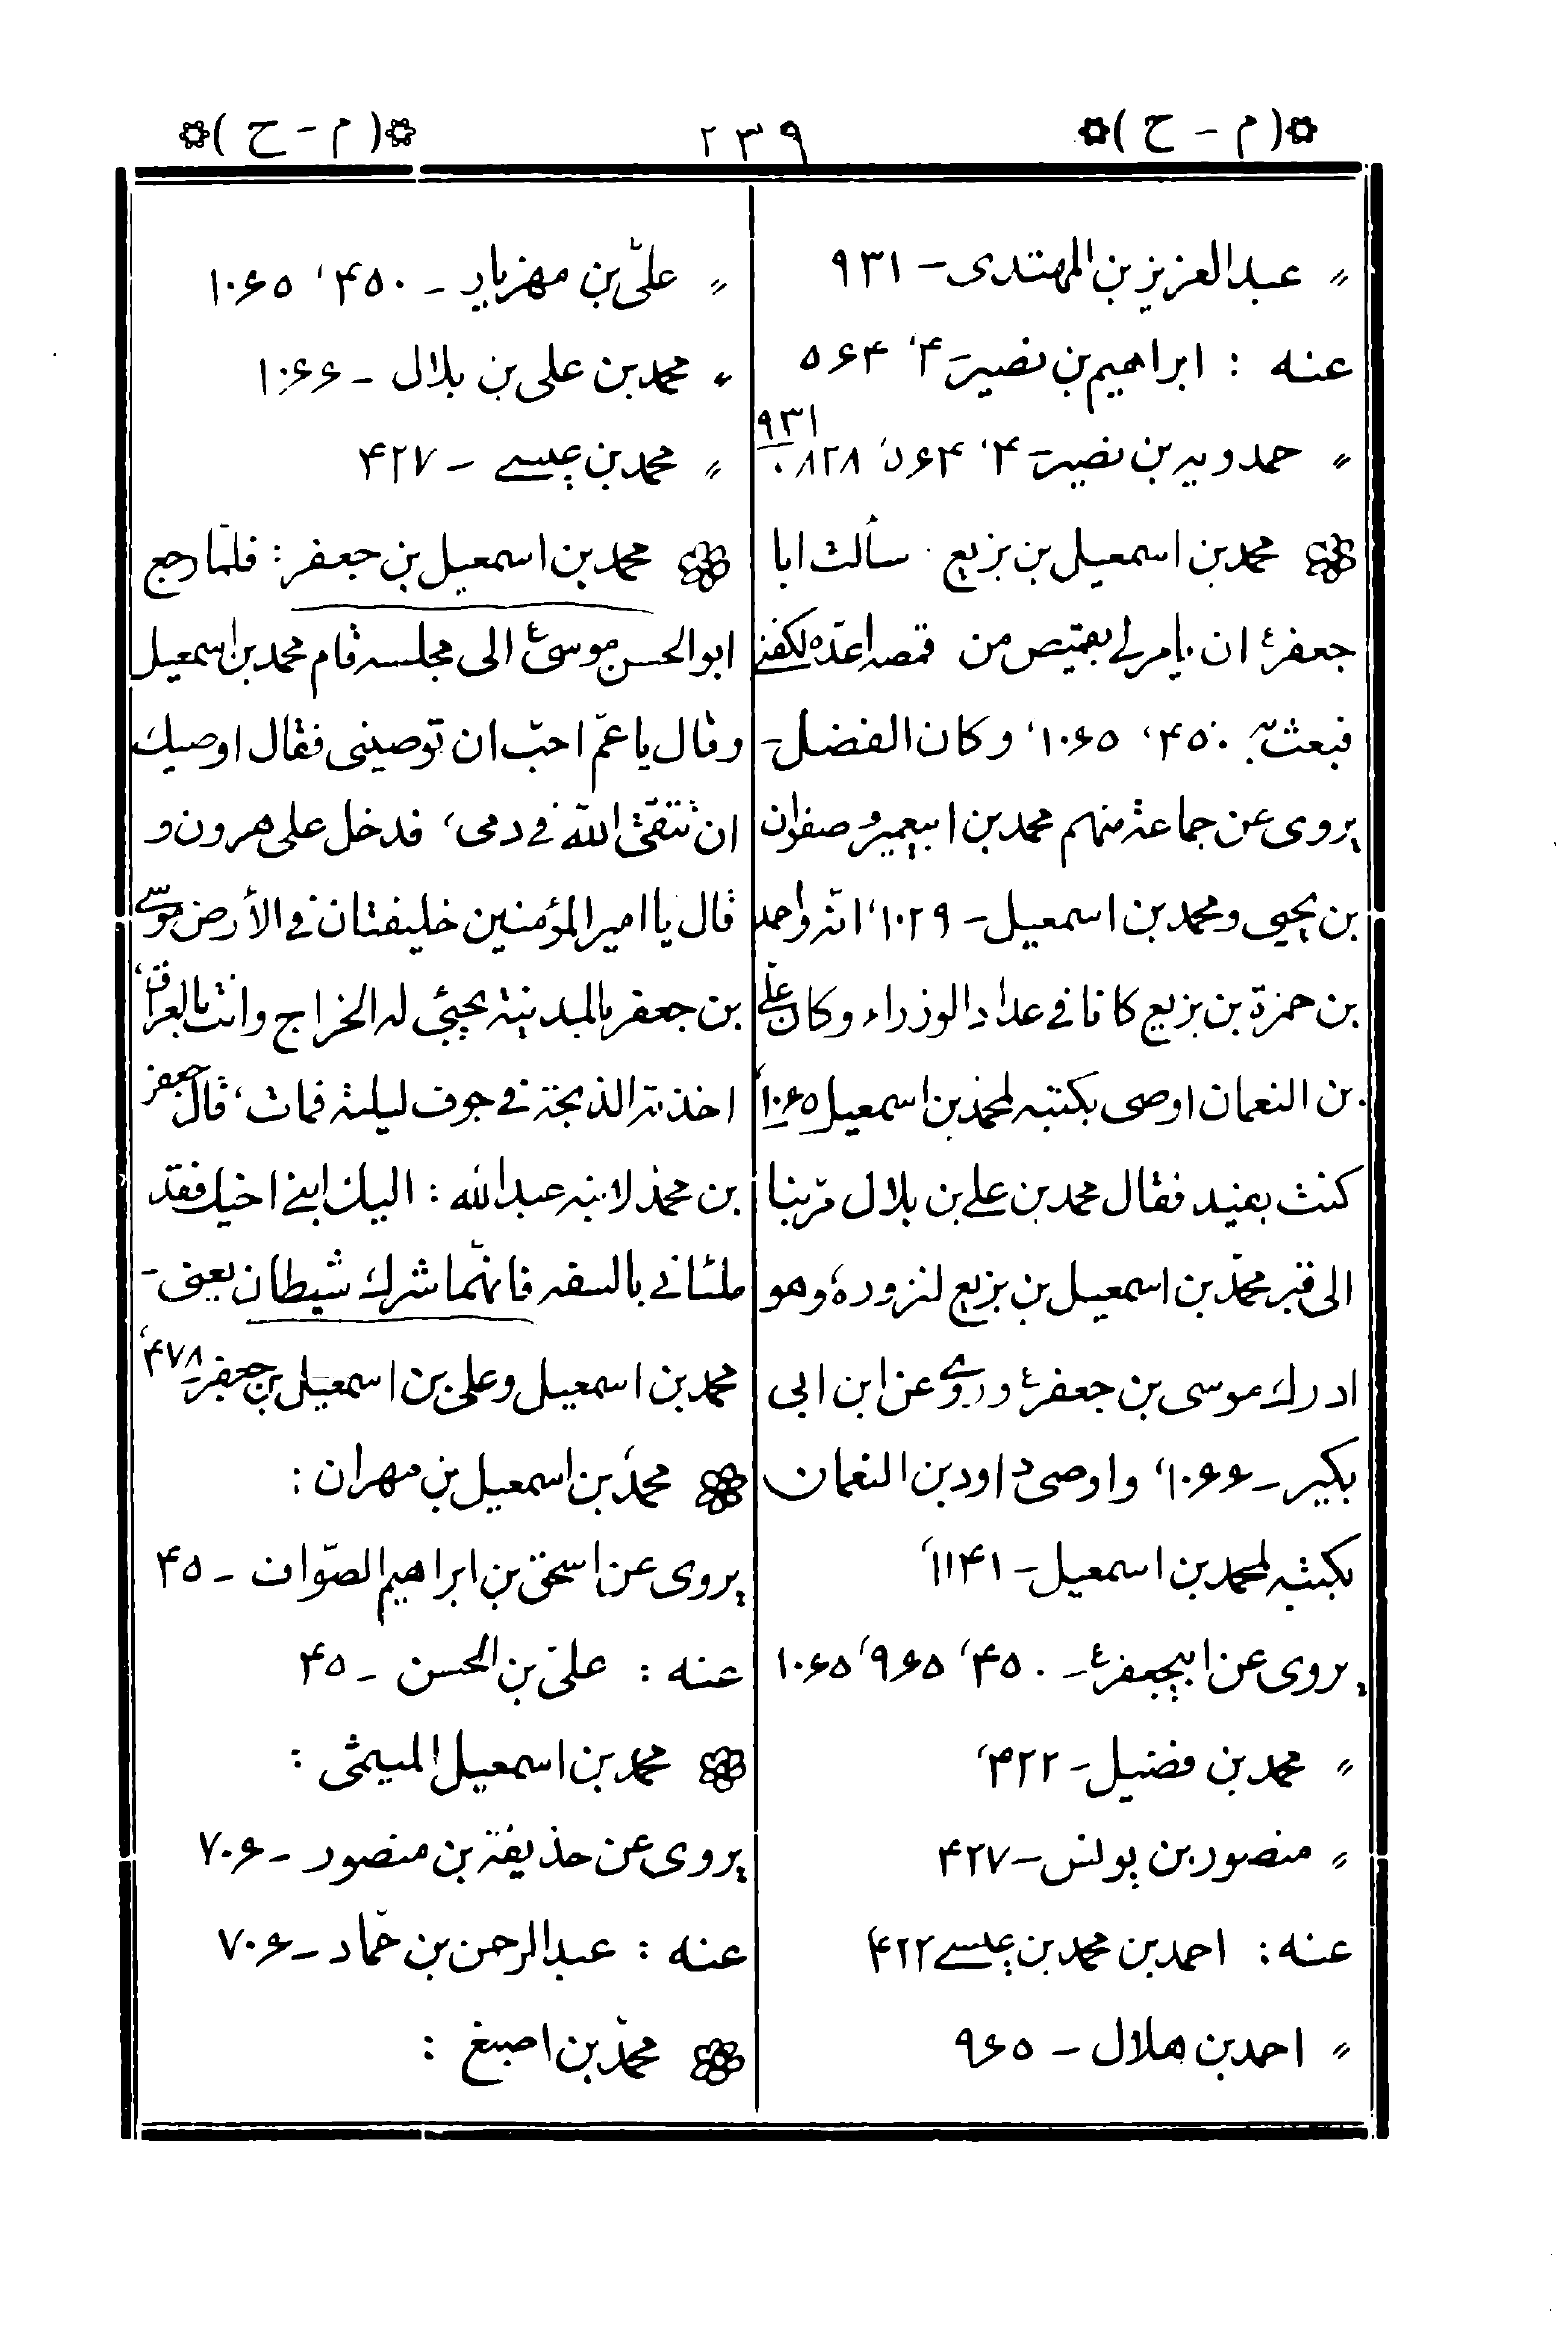 (م - ح) ۲۳۹ (م - ح)
〃 عبدالعزیز بن المهتدی - ۹۳۱
عنه : ابراهیم بن نصیر - ۴، ۵۶۴
〃 حمدویه بن نصیر - ۴، ۵۶۴، ۸۲۸، ۹۳۱
محمد بن اسمعیل بن بزیع . سألت ابا
جعفرؑ ان یأمر لی بقمیص من قمصه اعدّه لکفنی
فبعث به ۴۵۰، ۱۰۶۵، وکان الفضل -
یروی عن جماعة منهم محمد بن ابیعمیر و صفوان
بن یحیی و محمد بن اسمعیل - ۱۰۲۹، انه واحمد
بن حمزة بن بزیع کانا فی عداد الوزراء وکان علی
بن النعمان اوصی بکتبه لمحمد بن اسمعیل ۱۰۶۵،
کنت بفید فقال محمد بن علی بن بلال مرّ بنا
الی قبر محمّد بن اسمعیل بن بزیع لنزوره، وهو
ادرك موسی بن جعفرؑ وروی عن ابن ابی
بکیر - ۱۰۶۶، واوصی داود بن النعمان
بکتبه لمحمد بن اسمعیل - ۱۱۴۱،
یروی عن ابیجعفرؑ - ۴۵۰، ۹۶۵، ۱۰۶۵
〃 محمد بن فضیل - ۴۲۲،
〃 منصور بن یونس - ۴۲۷
عنه : احمد بن محمد بن عیسی ۴۲۲،
〃 احمد بن هلال - ۹۶۵
〃 علیّ بن مهزیار - ۴۵۰، ۱۰۶۵
〃 محمد بن علی بن بلال - ۱۰۶۶
〃 محمد بن عیسی - ۴۲۷
محمد بن اسمعیل بن جعفر : فلمّا رجع
ابوالحسن موسیؑ الی مجلسه قام محمد بن اسمعیل
وقال یا عمّ احبّ ان توصینی فقال اوصیك
ان تتقی اللّه فی دمی، فدخل علی هرون و
قال یا امیرالمؤمنین خلیفتان فی الأرض موسی
بن جعفر بالمدینة یجبئ له الخراج وانت بالعراق،
اخذته الذبحة فی جوف لیلته فمات، قال جعفر
بن محمد لابنه عبدالله : الیك ابنی اخیك فقد
ملئانی بالسفه فانهّما شرك شیطان یعنی -
محمد بن اسمعیل وعلی بن اسمعیل بن جعفر - ۴۷۸،
محمد بن اسمعیل بن مهران :
یروی عن اسحق بن ابراهیم الصوّاف - ۴۵
عنه : علیّ بن الحسن - ۴۵
محمد بن اسمعیل المیثمی :
یروی عن حذیفة بن منصور - ۷۰۶
عنه : عبدالرحمن بن حمّاد - ۷۰۶
محمّد بن اصبغ :